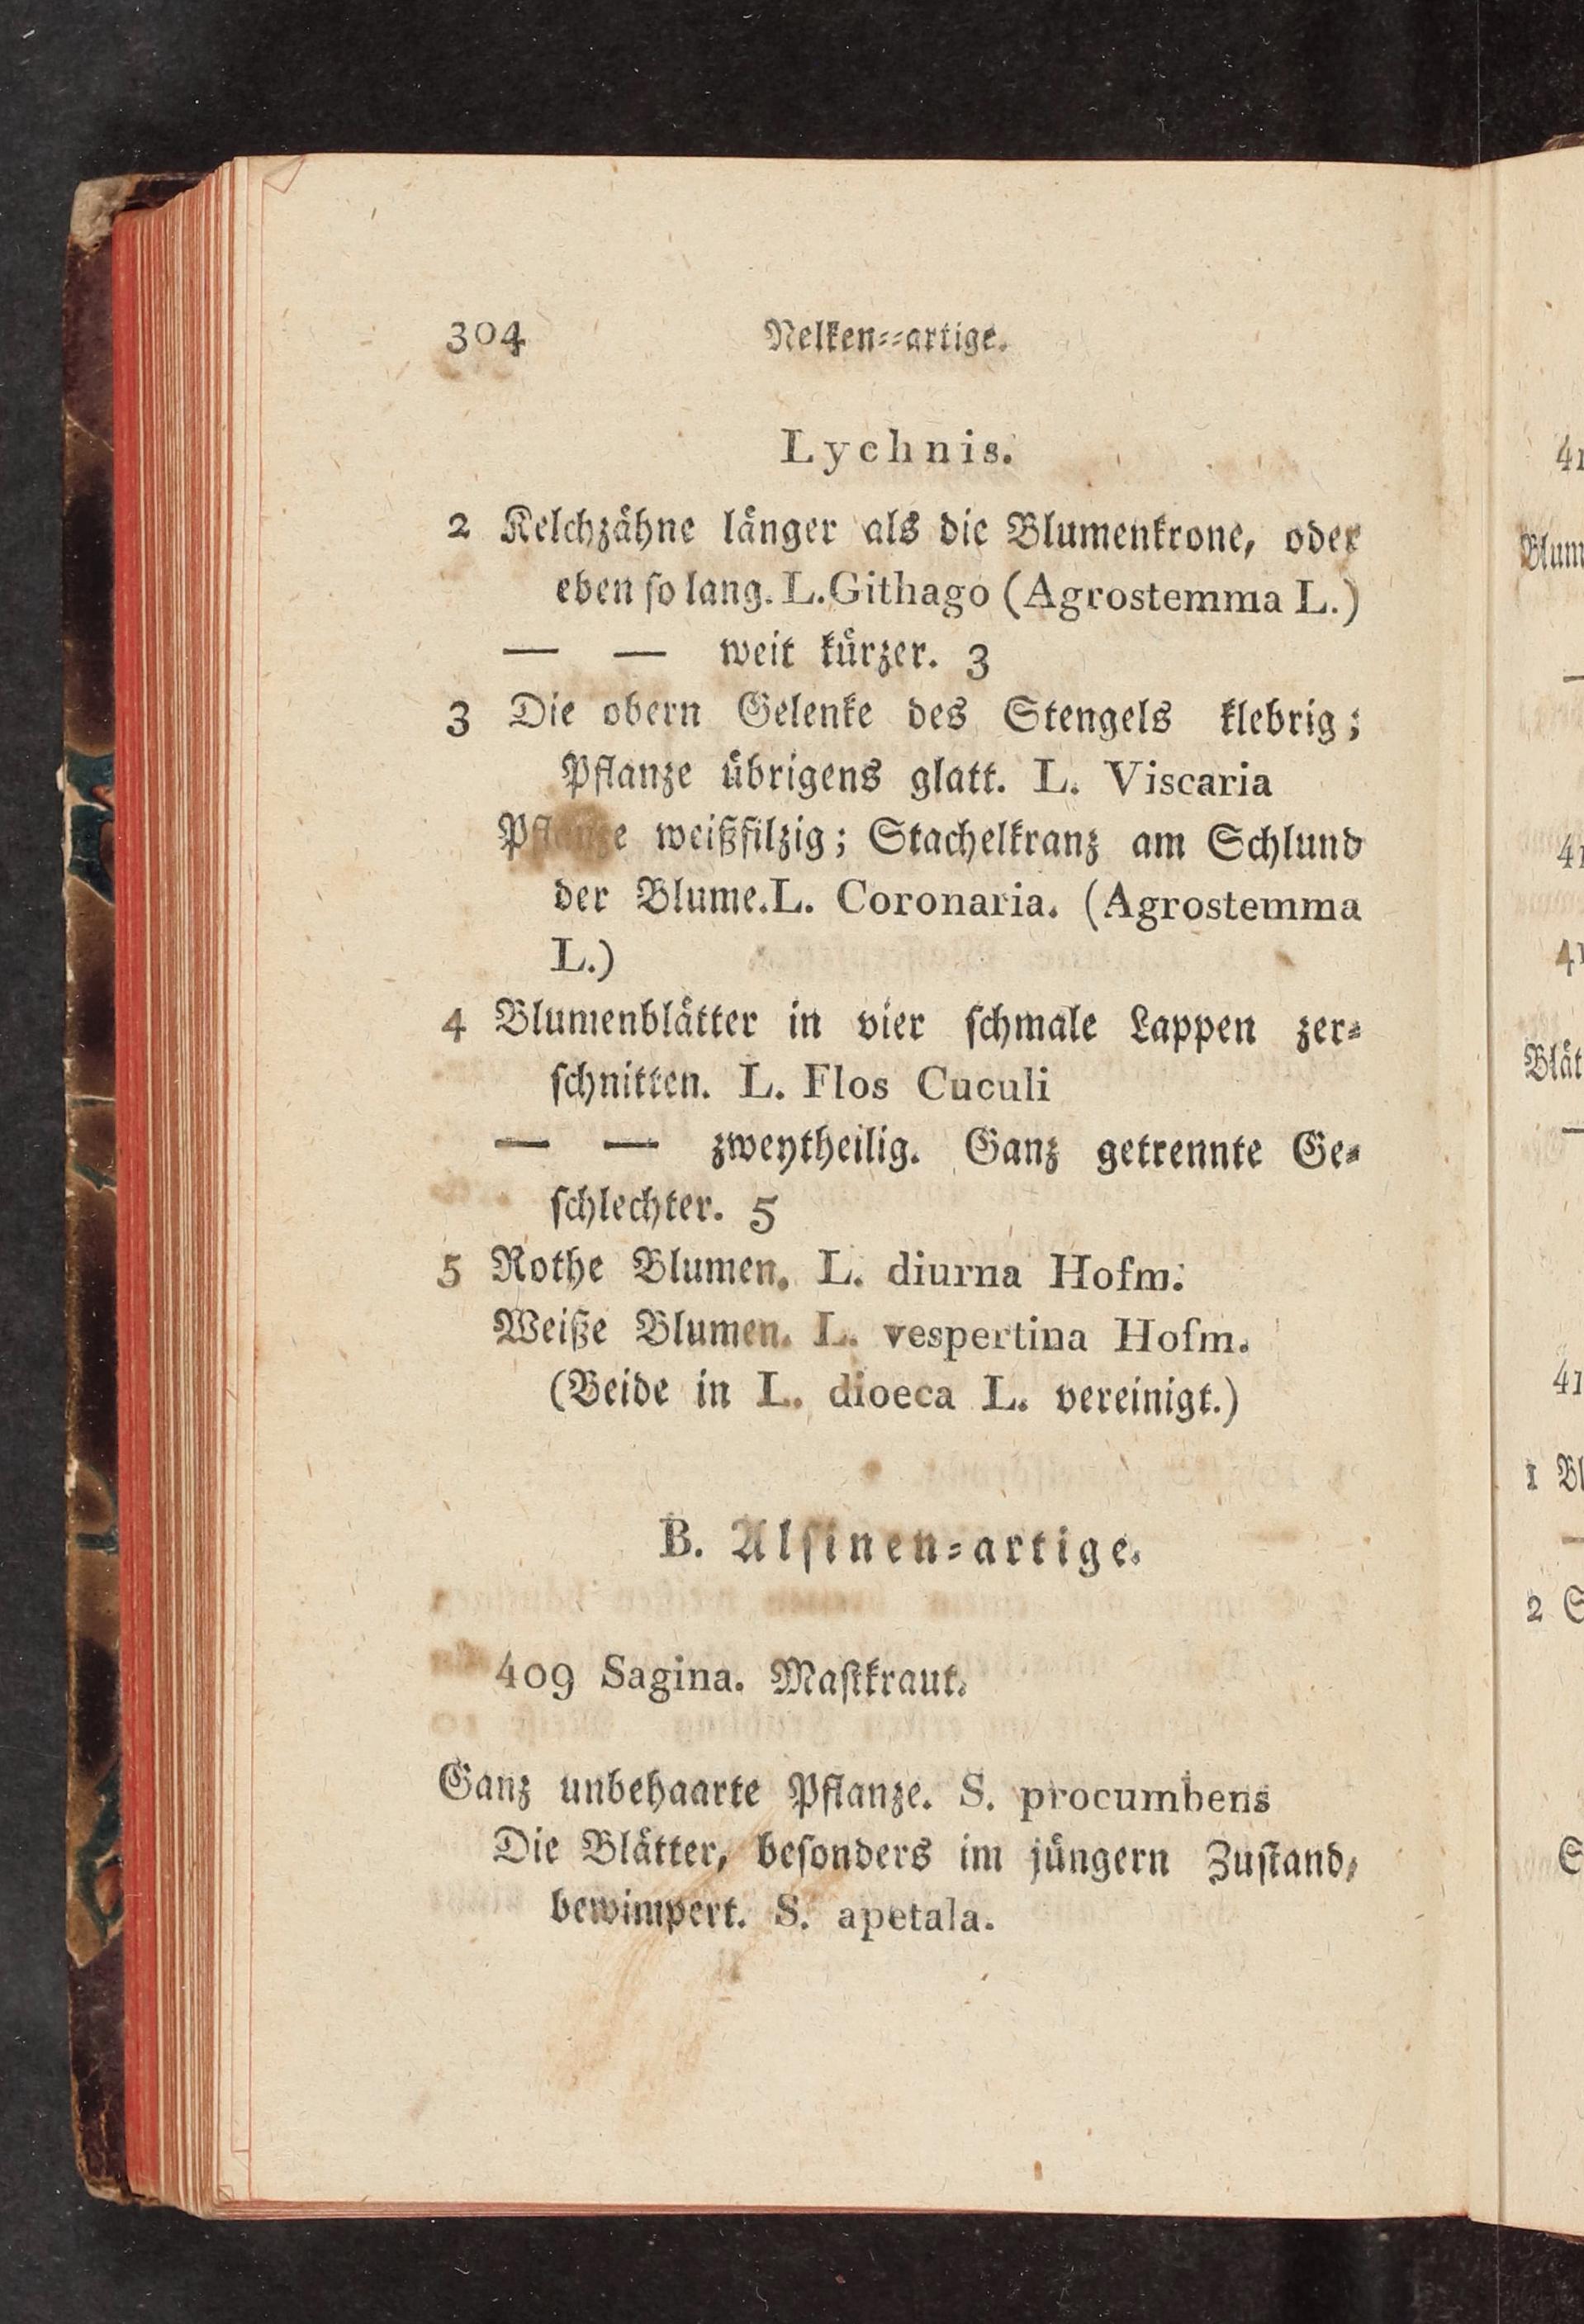 304
Nelken==artige.
Lychnis.
2 Kelchzähne länger als die Blumenkrone, oder
eben so lang. L. Githago (Agrostemma L.)
— — weit kürzer. 3
3 Die obern Gelenke des Stengels klebrig;
Pflanze übrigens glatt. L. Viscaria
Pflanze weißfilzig; Stachelkranz am Schlund
der Blume. L. Coronaria. (Agrostemma
L.)
4 Blumenblätter in vier schmale Lappen zer=
schnitten. L. Flos Cuculi
— — zweytheilig. Ganz getrennte Ge=
schlechter. 5
5 Rothe Blumen. L. diurna Hofm.
Weiße Blumen. L. vespertina Hofm.
(Beide in L. dioeca L. vereinigt.)
B. Alsinen=artige.
409 Sagina. Mastkraut.
Ganz unbehaarte Pflanze. S. procumbens
Die Blätter, besonders im jüngern Zustand,
bewimpert. S. apetala.